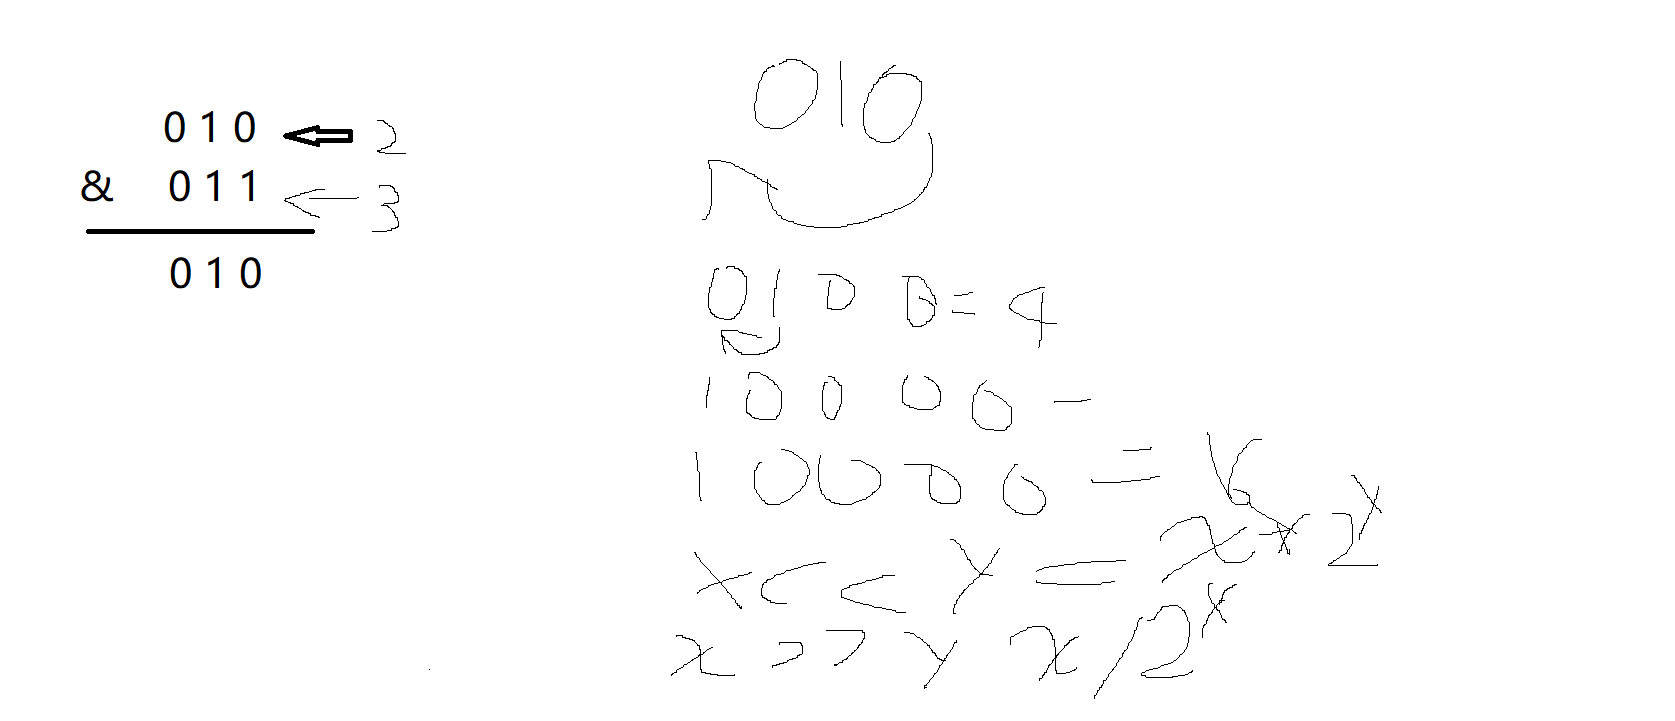 010 2
& 011 3
010
010
0100=4
10000-
10000=16
x<<y=x*2^y
x>>y x/2^y